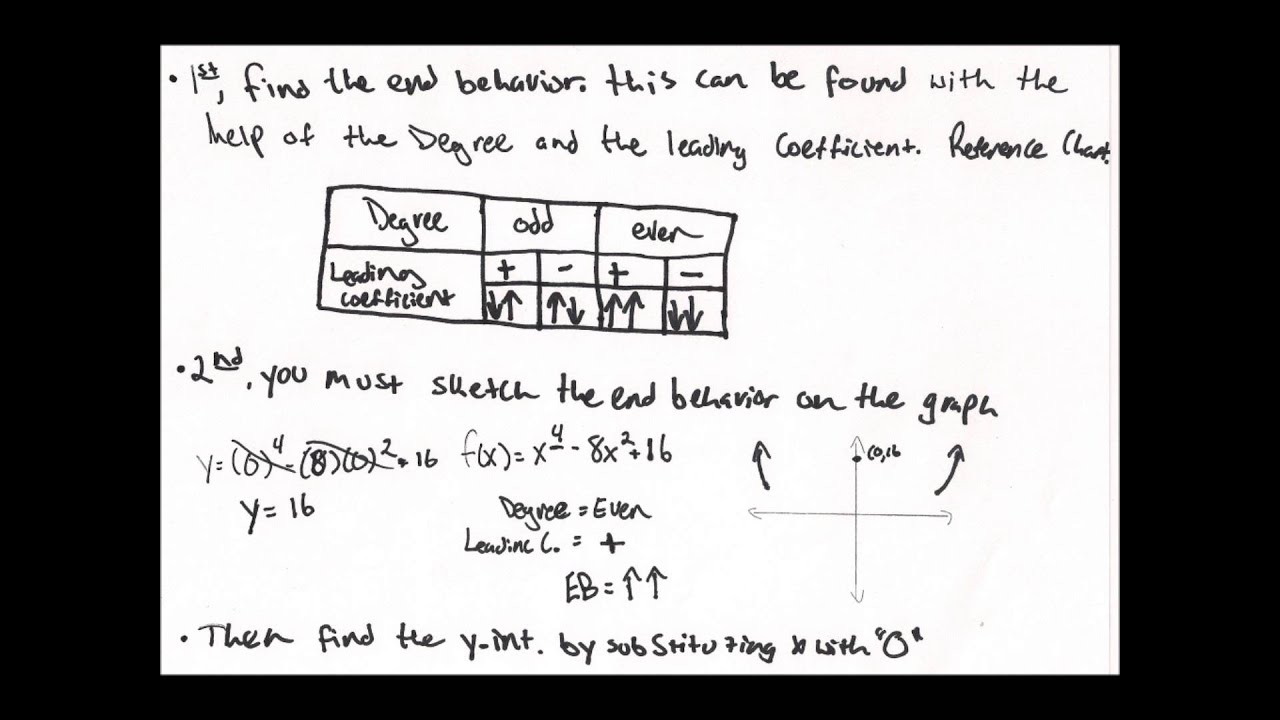 • 1st, find the end behavior. this can be found with the
help of the Degree and the leading Coefficient. Reference Chart.
Degree odd even
Leading + - + -
coefficient ↓↑ ↑↓ ↑↑ ↓↓
• 2nd, you must sketch the end behavior on the graph
y=(0)⁴-(8)(0)²+16 f(x)=x⁴-8x²+16 (0,16
y=16
Degree = Even
Leading C. = +
EB=↑↑
• Then find the y-int. by substituting x with "0"